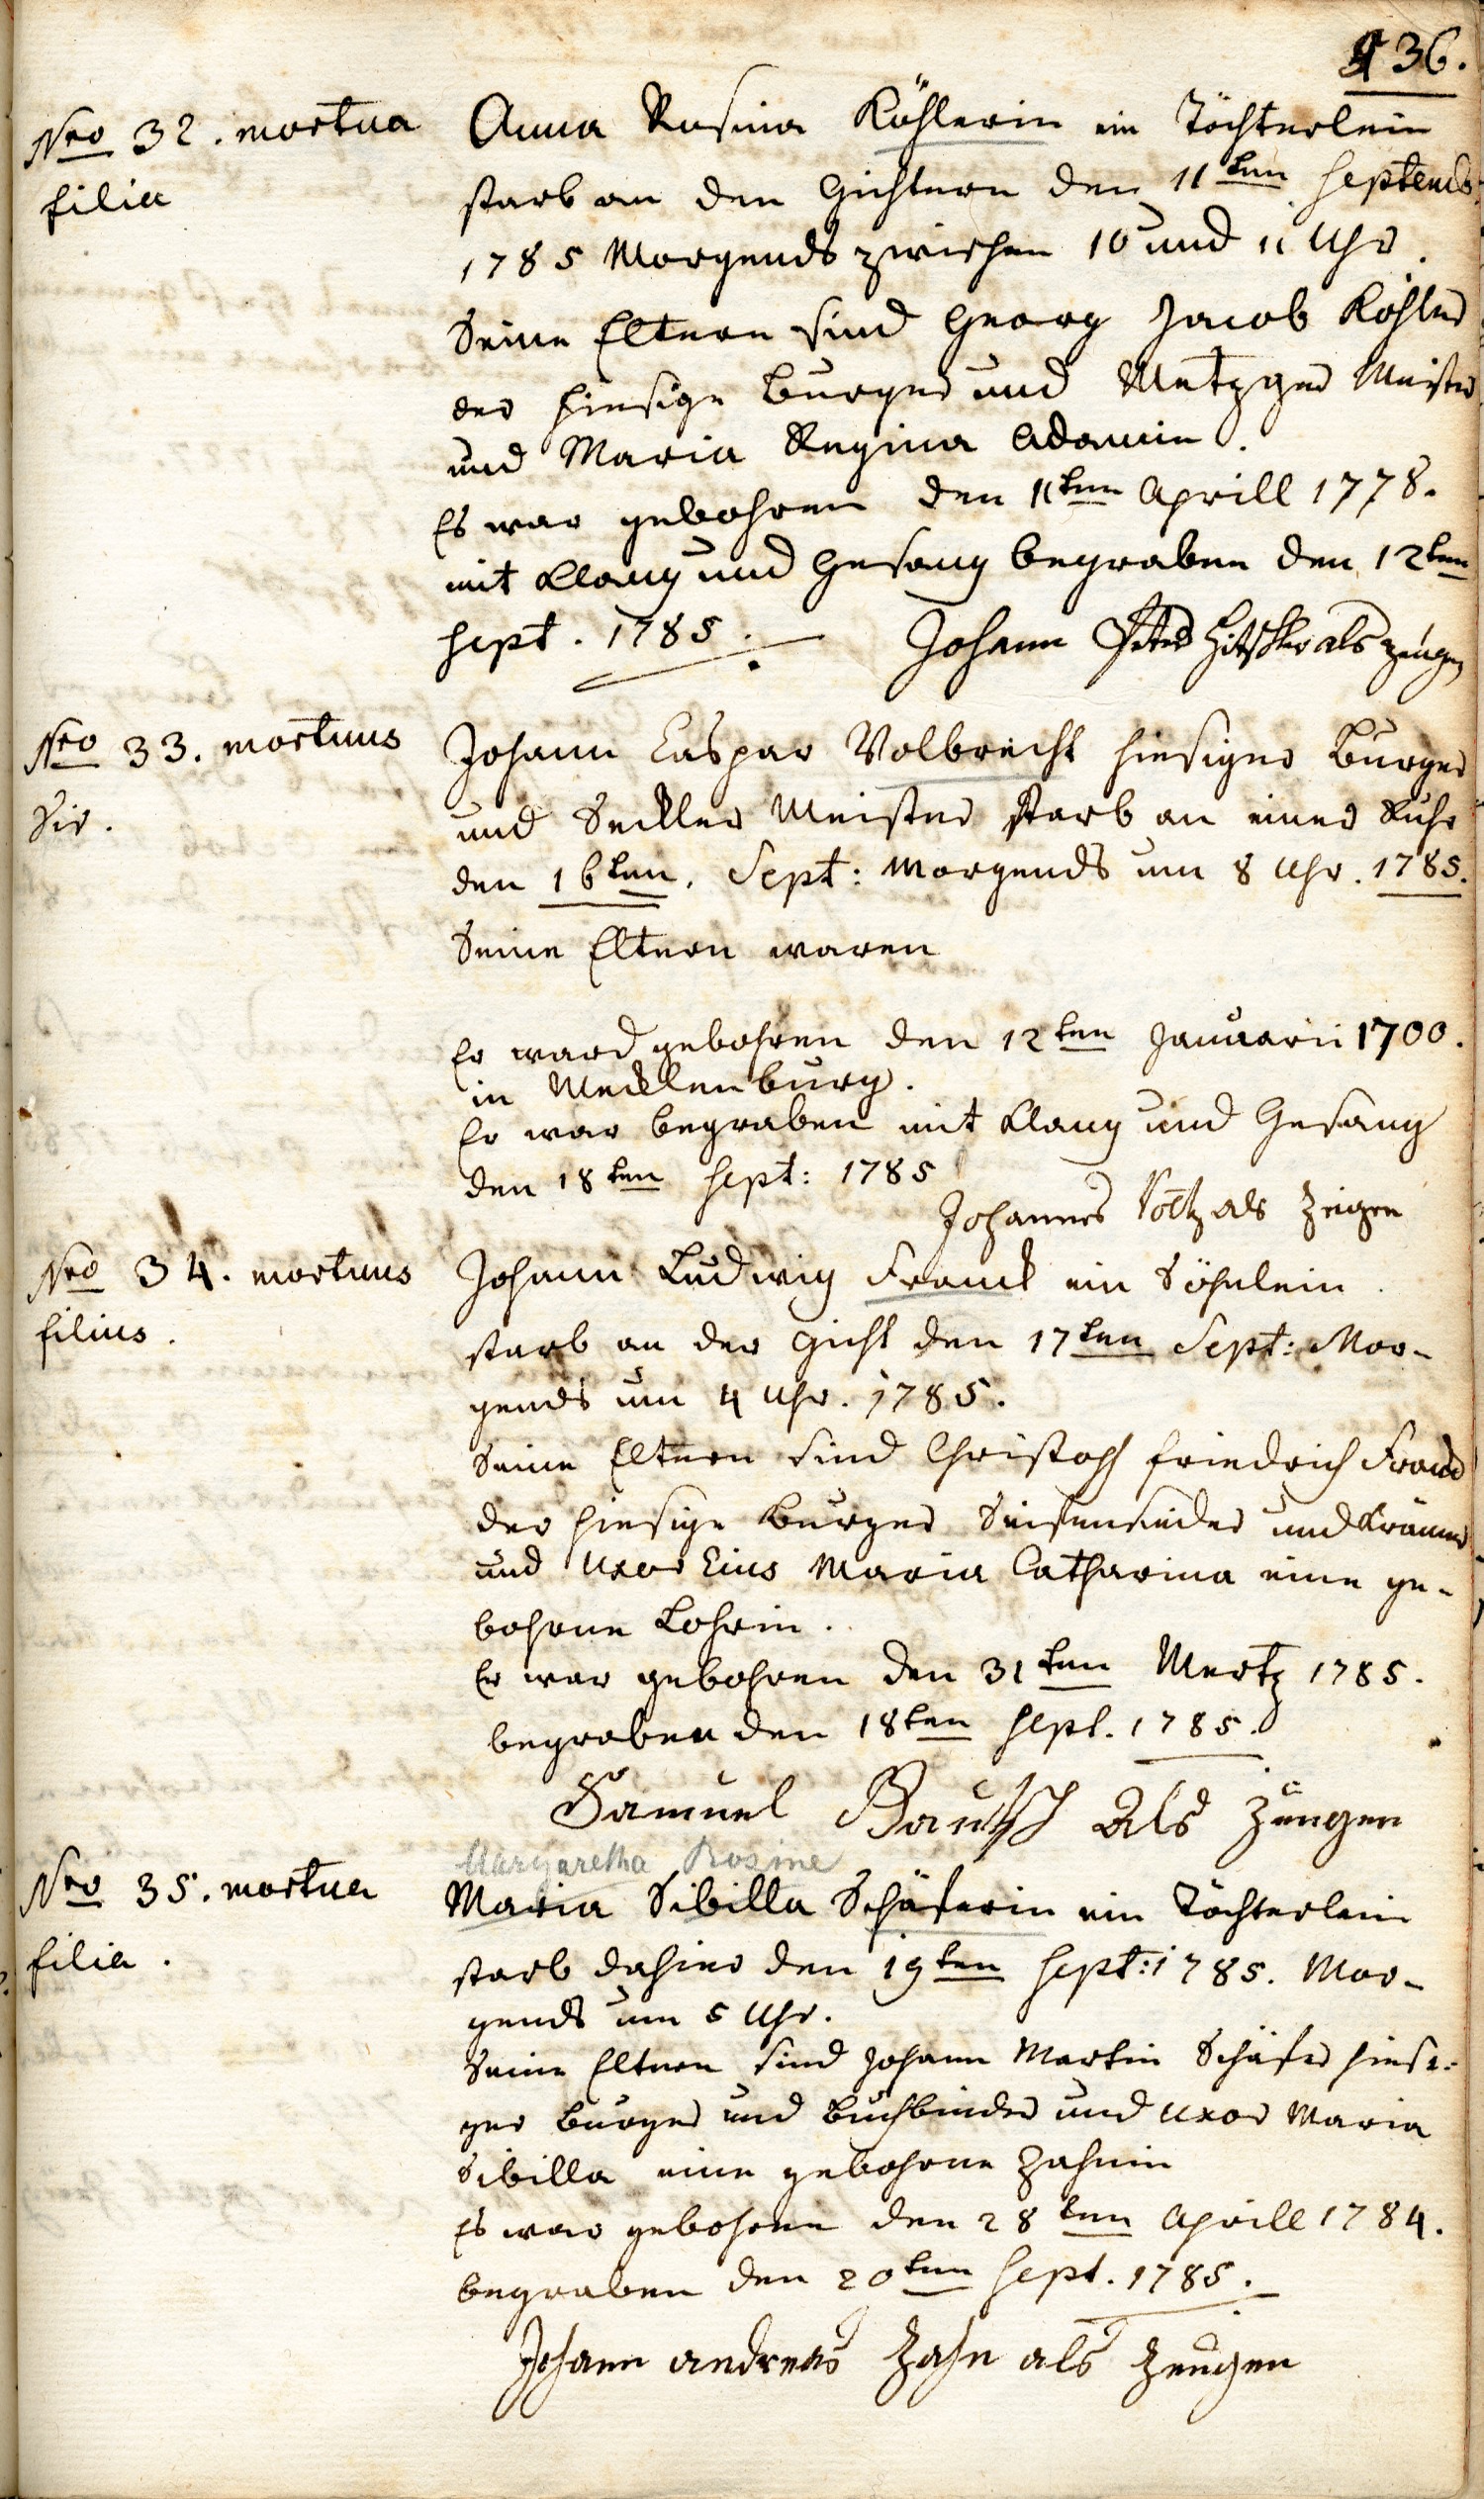 136.
Nro 32. mortua
filia
Anna Rosina Köhlerin ein Töchterlein
starb an den Gichtern den 11ten Septemb.
1785 Morgends zwischen 10 und 11 Uhr.
Seine Eltern sind Georg Jacob Köhler
der hiesige Burger und Metzger Meister
und Maria Regina Adamin.
Es war gebohren den 11ten Aprill 1778.
mit Klang und Gesang begraben den 12ten
Sept. 1785.
Johann Peter als Zeugen
Nro 33. mortuus
Vir.
Johann Caspar Volbrecht hiesiger Burger
und Seckler Meister starb an einer Ruhr
den 16ten. Sept: Morgends um 8 Uhr. 1785.
Seine Eltern waren
Er ward gebohren den 12ten Januarii 1700.
in Mecklenburg.
Er war begraben mit Klang und Gesang
den 18ten Sept: 1785
Johannes Voltz als Zeigen
Nro 34. mortuus
filius.
Johann Ludwig Franck ein Söhnlein
starb an der Gicht den 17ten Sept: Mor-
gends um 4 Uhr. 1785.
Seine Eltern sind Christoph Friedrich Franck
der hiesige Burger Seifensieder und Krämer
und Uxor Eius Maria Catharina eine ge-
bohrne Lohrin.
Er war gebohren den 31ten Mertz 1785.
begraben den 18ten Sept. 1785.
Samuel Bautsch Als Zeugen
Nro 35. mortua
filia.
Margaretha Rosine
Maria Sibilla Schäferin ein Töchterlein
starb dahier den 19ten Sept: 1785. Mor-
gends um 5 Uhr.
Seine Eltern sind Johann Martin Schäfer hiesi-
ger Burger und Buchbinder und Uxor Maria
Sibilla eine gebohrne Zahnin
Es war gebohren den 28ten Aprill 1784.
begraben den 20ten Sept. 1785.
Johann andreas Zahn als Zeugen